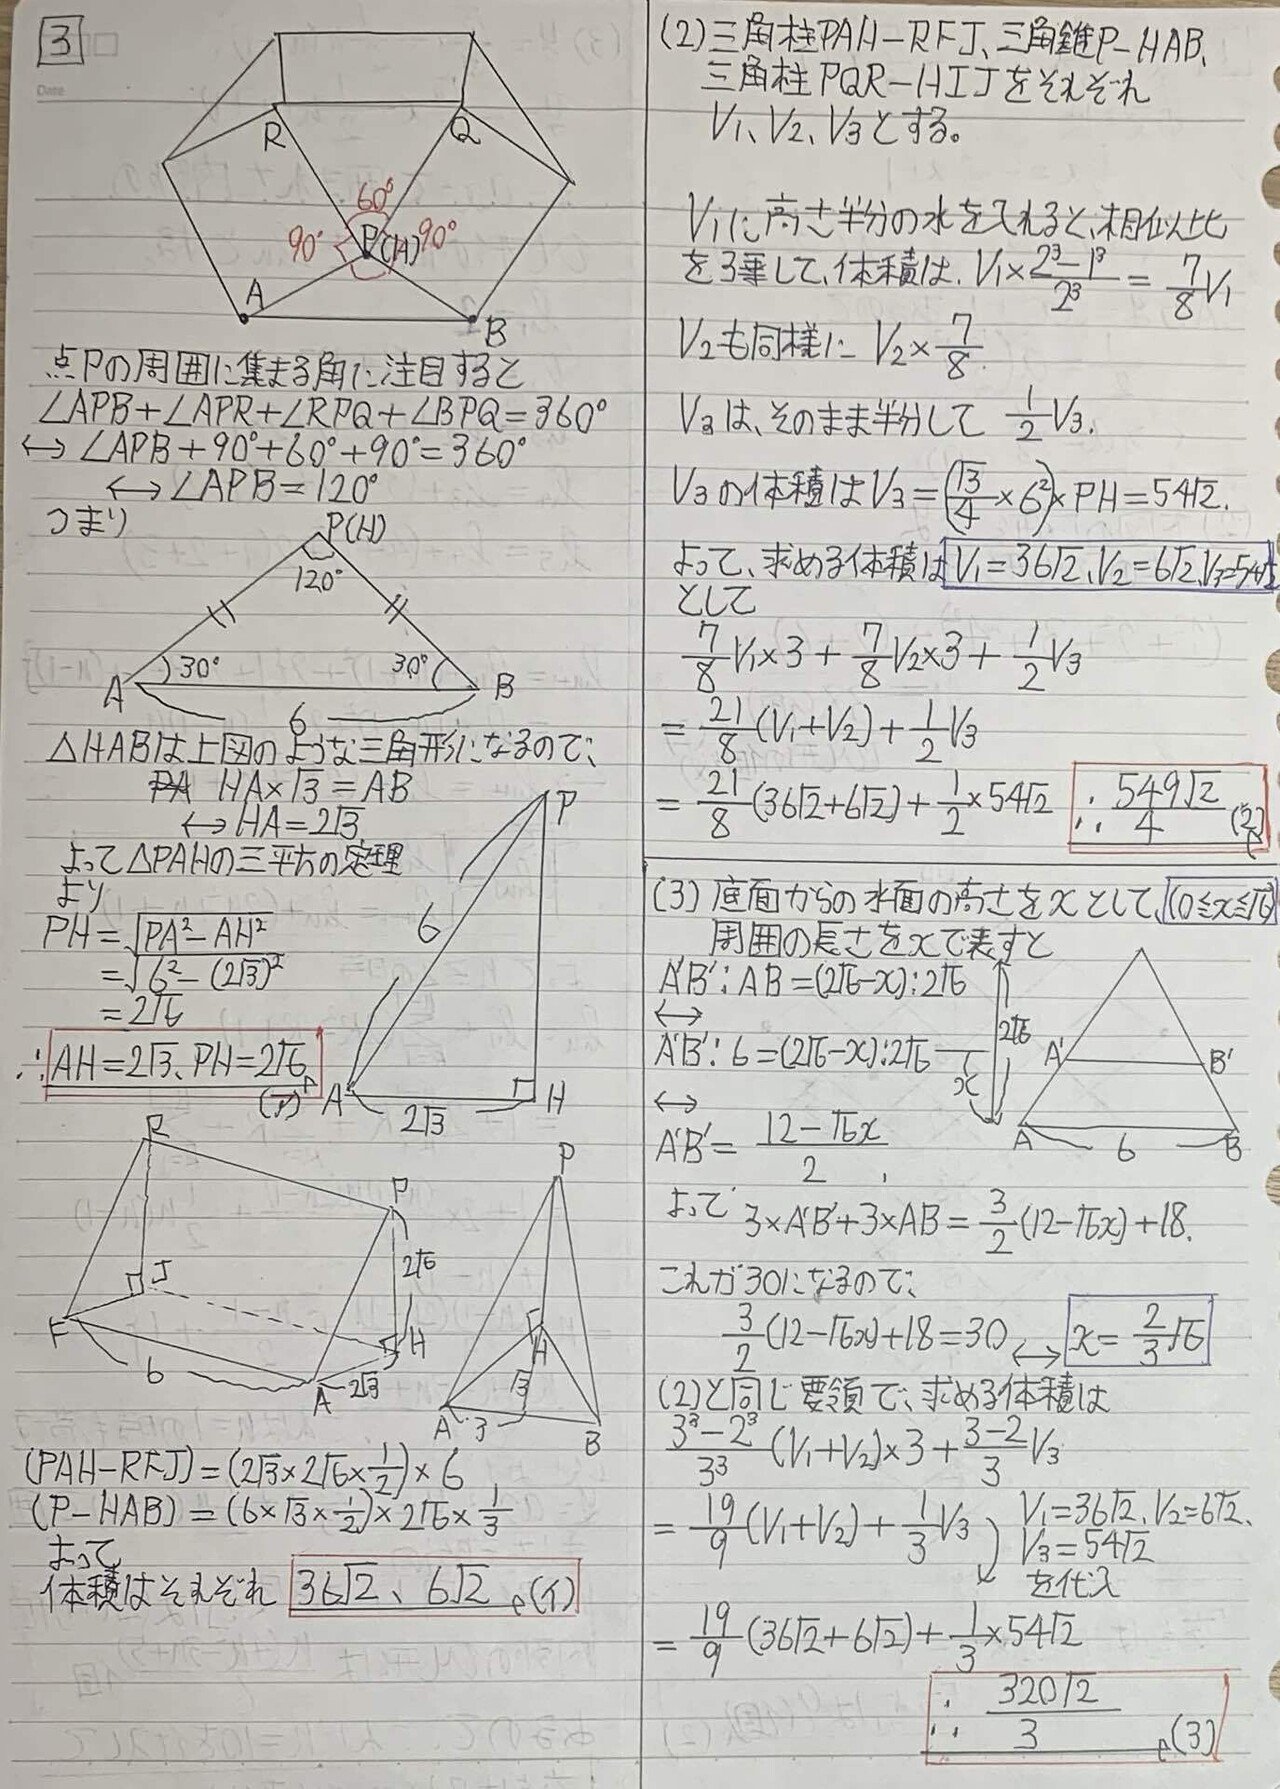 3
Date
R
Q
60°
90°
P(H)
90°
A
B
点Pの周囲に集まる角に注目すると
∠APB+∠APR+∠RPQ+∠BPQ=360°
↔∠APB+90°+60°+90°=360°
↔∠APB=120°
つまり
P(H)
120°
30°
30°
A
B
6
△HABは上図のような三角形になるので、
HA×√3=AB
↔HA=2√3
よって△PAHの三平方の定理
より
PH=√(PA²-AH²)
=√(6²-(2√3)²)
=2√6
∴AH=2√3、PH=2√6
(ア)
P
6
A
2√3
H
R
P
2√6
J
F
H
6
A
2√3
P
H
√3
A
3
B
(PAH-RFJ)=(2√3×2√6×1/2)×6
(P-HAB)=(6×√3×1/2)×2√6×1/3
よって
体積はそれぞれ 36√2、6√2 (イ)
(2)三角柱PAH-RFJ、三角錐P-HAB、
三角柱PQR-HIJをそれぞれ
V₁、V₂、V₃とする。
V₁に高さ半分の水を入れると、相似比
を3乗して、体積は、V₁×(2³-1³)/2³=7/8V₁
V₂も同様に V₂×7/8
V₃は、そのまま半分して 1/2V₃.
V₃の体積はV₃=(√3/4×6²)×PH=54√2.
よって、求める体積は V₁=36√2、V₂=6√2、V₃=54√2
として
7/8V₁×3+7/8V₂×3+1/2V₃
=21/8(V₁+V₂)+1/2V₃
=21/8(36√2+6√2)+1/2×54√2 ∴549√2/4 (2)
(3)底面からの水面の高さをxとして、(0≦x≦√6)
周囲の長さをxで表すと
A'B':AB=(2√6-x):2√6
↔
A'B':6=(2√6-x):2√6
↔
A'B'=(12-√6x)/2
2√6
x
A'
B'
A
6
B
よって 3×A'B'+3×AB=3/2(12-√6x)+18.
これが30になるので、
3/2(12-√6x)+18=30↔x=2/3√6
(2)と同じ要領で、求める体積は
(3³-2³)/3³(V₁+V₂)×3+(3-2)/3V₃
=19/9(V₁+V₂)+1/3V₃
V₁=36√2、V₂=6√2、
V₃=54√2
を代入
=19/9(36√2+6√2)+1/3×54√2
∴320√2/3 (3)